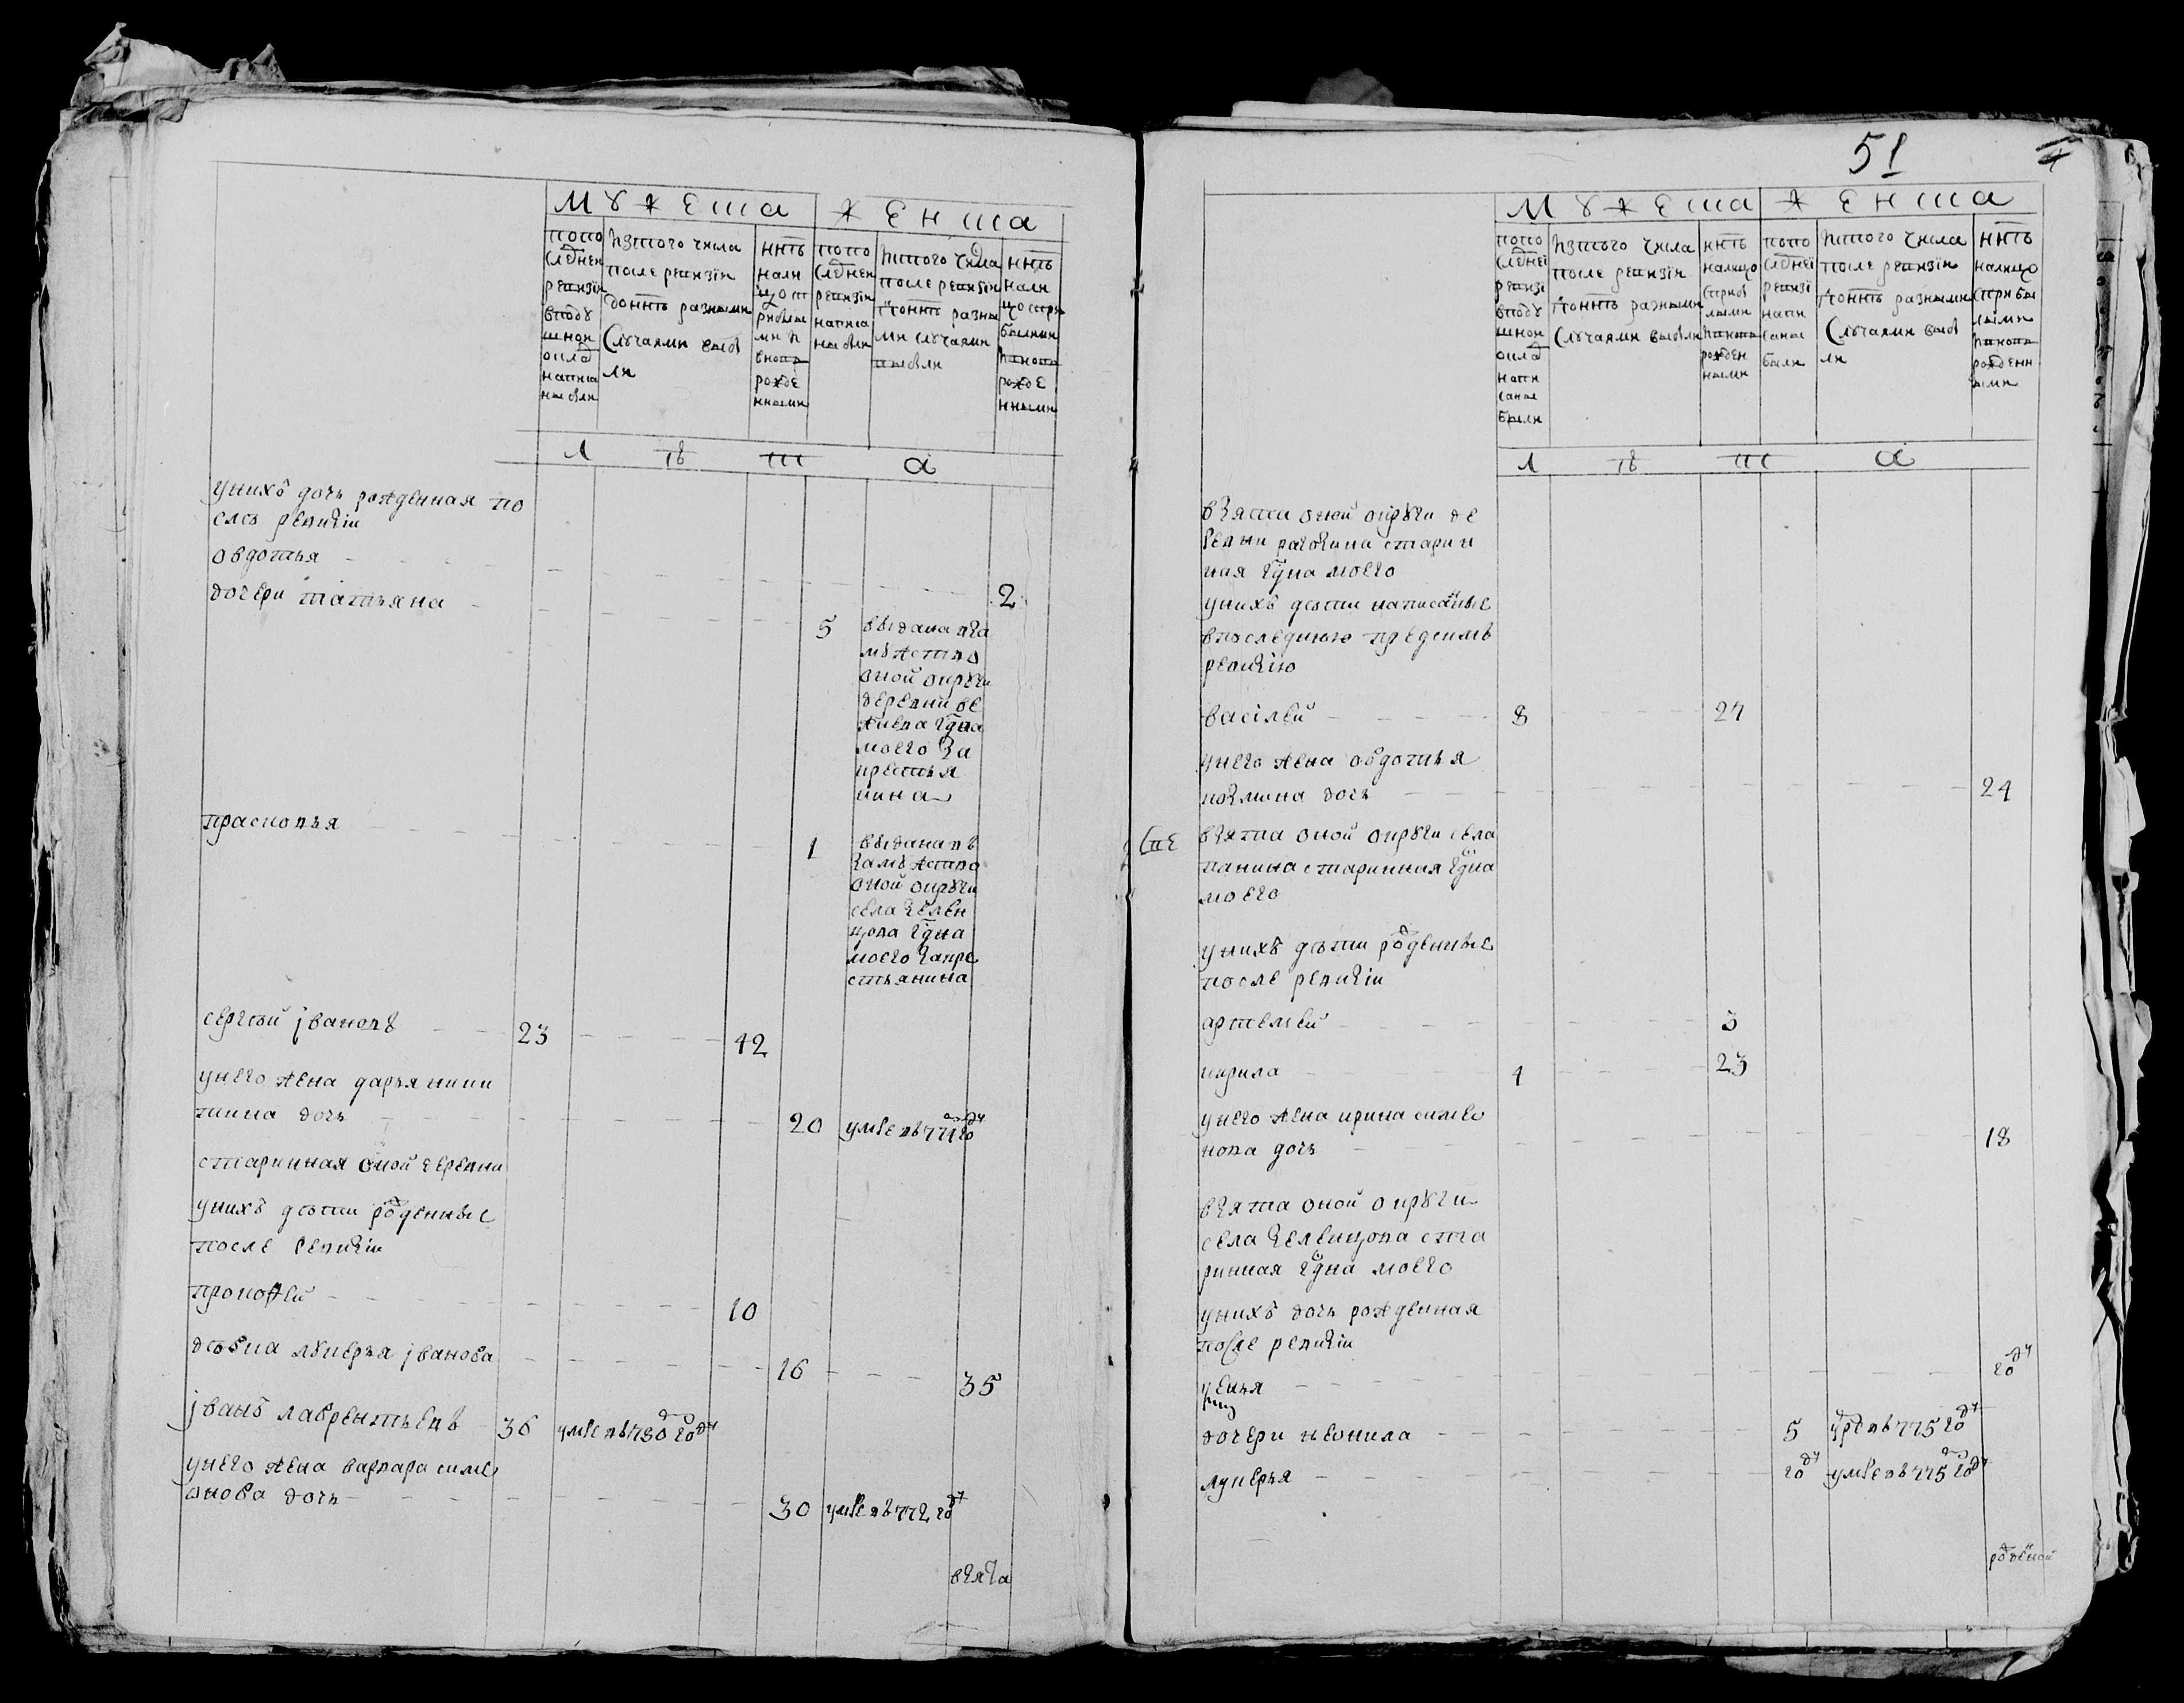 МУЖЕСКА
ЖЕНСКА
попо
следнеи
ревизiи
вподу
шнои
оклад
написа
ны были
изтого числа
после ревизiи
донне разными
случаями выбы
ли
нне
нали
цо ст
рибылы
ми и
внова
рожде
нными
попо
следнеи
ревизiи
написа
ны были
истого числа
после ревизiи
донне разны
ми случаями
выбыли
нне
нали
цо спри
былыми
ивнова
рожде
нными
Л Ѣ Т А
унихъ дочь рожденная по
слѣ ревизiи
овдотья
2
дочери татьяна
5
выдана вза
мужство
оной округи
деревни
гдна
моего за
крестья
нина
прасковья
1
выдана въ
замужство
оной округи
села зелен
цова гдна
моего закре
стьянина
сергѣй iвановъ 23 42
унего жена дарья ники
тина дочь 20 умре въ 771 году
старинная оной деревни
унихъ дѣти рожденные
после ревизiи
прокофей 10
дѣвка лукерья iванова 16 35
iванъ лаврентьевъ 36 умре въ 780 году
унего жена варвара симе
онова дочь 30 умре въ 772 году
взята
51
МУЖЕСКА
ЖЕНСКА
попо
следнеi
ревизi
вподу
шнои
оклад
напи
саны
были
изтого числа
после ревизiи
донне разными
случаями выбыли
нне
налицо
сприб
лыми
ивнова
рожден
ными
попо
следнеi
ревизi
напи
саны
были
истого числа
после ревизiи
донне разными
случаями выбы
ли
нне
налицо
сприбы
лыми
ивнова
рожденн
ыми
Л Ѣ Т А
взята оной округи де
ревни рагозина старин
ная гдна моего
унихъ дѣти написанные
впоследнюю предсимъ
ревизiю
васiлей 8 24
унего жена овдотья
козмина дочь 24
взята оной округи села
панина старинная гдна
моего
унихъ дѣти рожденные
после ревизiи
артемей 3
кирила 23
унего жена ирина симео
нова дочь 18
взята оной округи
села зеленцова ста
ринная гдна моего
унихъ дочь рожденная
после ревизiи
году
дочери неонила 5 умре въ 775 году
лукерья году умре въ 775 году
рожденой